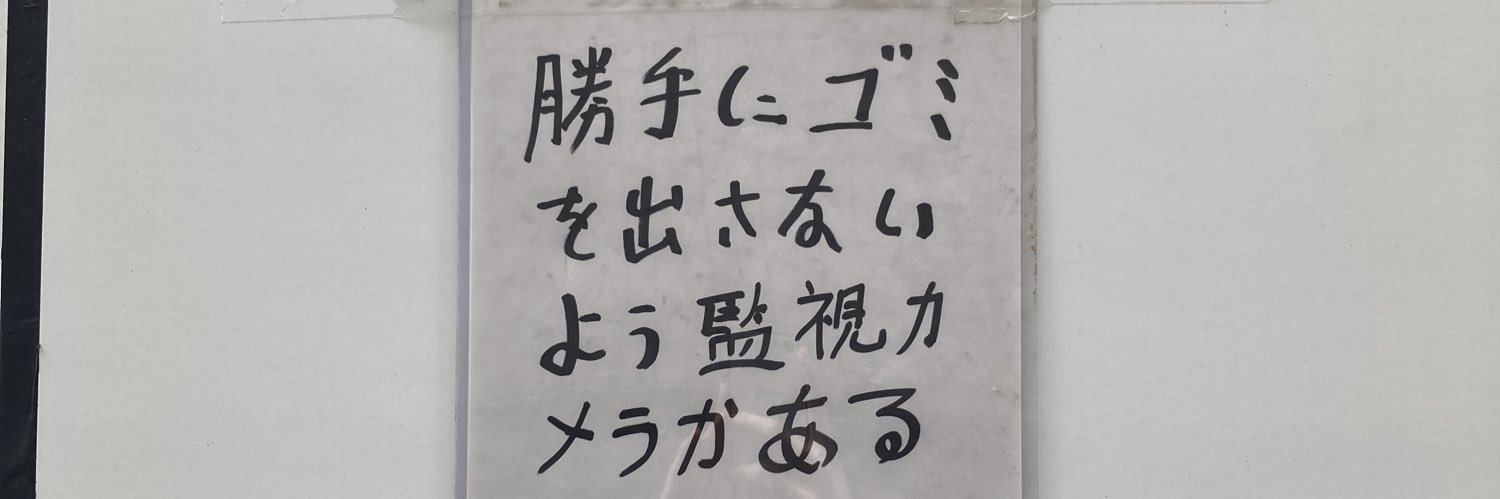 勝手にゴミ
を出さない
よう監視カ
メラがある